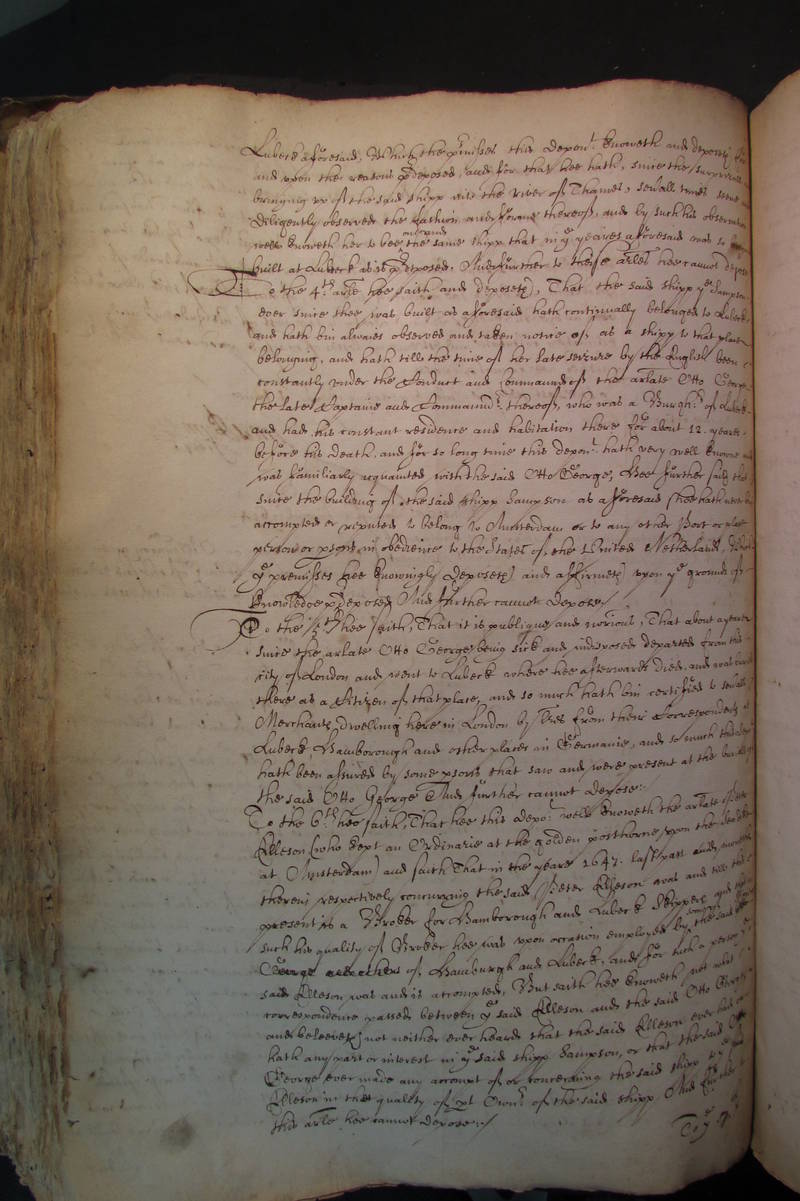 Lubeck aforesaid, Which the premisses this depont knoweth and deposeth
and upon the reasons predeposed, and for that hee hath, since the surprizall
bringing up of the said shipp into the River of Thames, severall times
diligently observed the fashion and forme thereof, and by such his observation
well knoweth her to bee the same shipp that in ye yeares aforesaid was so
one and
built at Lubeck as is predeposed, And further to these arles hee cannot depose
To the 4th arle hee saith and deposeth, That the said shipp ye Sampson
ever since shee was built as aforesaid hath continually belonged to Lubeck
and hath bin alwaies observed and taken notice of as a shipp to that place
belonging, and hath till the time of her late seizure by the English been
constantly under the Conduct and Command of the arlate Otto George
the late Captaine and Commandr thereof, who was a Burghr of Lubeck
and had his constant residence and habitation there for about 12 yeares
before his death, and for so long time this depont hath very well knowne and
was familiarly acquainted with the said Otto George, Hee further saith that
since the building of the said shipp Sampson as aforesaid shee hath never bin
accompted or reputed to belong to Amsterdam or to any other Port or place
person or psons in obedience to the States of the United Netherlands,
ye premisses hee knowingly deposeth and affirmeth upon ye grounds of
knowledge predeposed And further cannot depose/
To the 5th hee saith, That it is publique and notorious, That about a yeare
since the arlate Otto George being sick and indisposed departed from this
city of London and went to Lubeck where hee afterwards died, and was buried
there as a Citizen of that place, and so much hath bin certified to severall
Merchants dwelling here in London by Lres from their Correspondents at
Lubeck, Hamborough and other places in Germanie, and so much this depot
hath been assured by some psons that saw and were present at the buriall of
the said Otto George And further cannot depose:-
To the 6th hee saith, That hee this depot well knoweth the arlate Peter
Elleson (who kept an Ordinarie at the golden posthorne upon the
at Amsterdam) and saith That in the yeare 1647. last past and
therein respectively concurring the said Peter Elleson was and
present is a Broker for Hamborough and Lubeck Skippers and
such his quality of Broker hee was upon occasion employed by the said
George of Hamburgh and Lubeck, and for such a person ye
said Elleson was and is accompted, But saith hee knoweth not what
correspondence passed between ye said Elleson and the said Otto George
and beleeveth not neither ever heard that the said Elleson ever had or
hath any part or interest in ye said shipp Sampson, or that the said Otto
George ever made any accompt of or concerning the said shipp to ye said
Elleson in the quality of pt Ownr of the said shipp And further to
this arle hee cannot depose:/
To ye 7